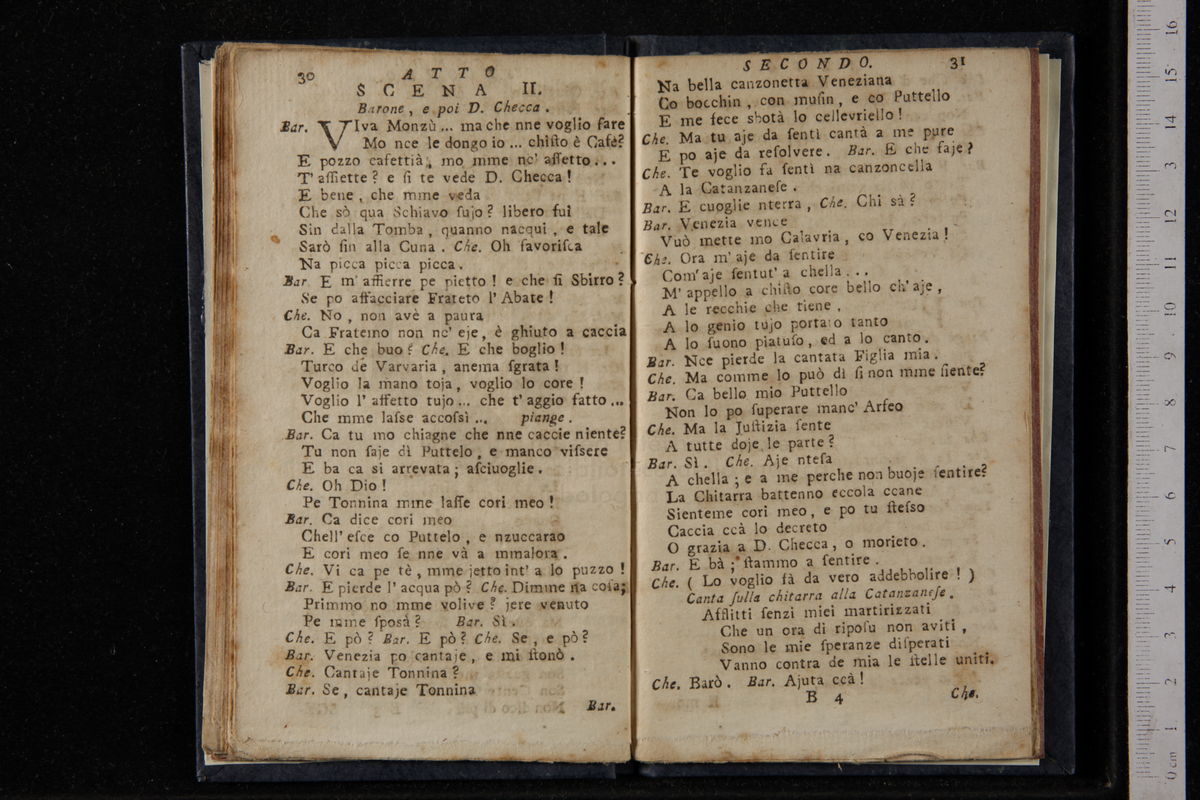 30
ATTO
SCENA II.
Barone, e poi D. Checca.
Bar. VIva Monzù... ma che nne voglio fare
Mo nce le dongo io... chiſto è Cafè?
E pozzo cafettià, mo mme nc' aſſetto...
T' aſſiette? e ſi te vede D. Checca!
E bene, che mme veda
Che sò qua Schiavo ſujo? libero fui
Sin dalla Tomba, quanno nacqui, e tale
Sarò ſin alla Cuna. Che. Oh favoriſca
Na picca picca picca.
Bar. E m' afſierre pe pietto! e che ſi Sbirro?
Se po affacciare Frateto l' Abate!
Che. No, non avè a paura
Ca Fratemo non nc' eje, è ghiuto a caccia
Bar. E che buo? Che. E che boglio!
Turco de Varvaria, anema ſgrata!
Voglio la mano toja, voglio lo core!
Voglio l' affetto tujo... che t' aggio fatto...
Che mme laſse accoſsì... piange.
Bar. Ca tu mo chiagne che nne caccie niente?
Tu non ſaje dì Puttelo, e manco viſsere
E ba ca si arrevata; aſciuoglie.
Che. Oh Dio!
Pe Tonnina mme laſſe cori meo!
Bar. Ca dice cori meo
Chell' eſce co Puttelo, e nzuccarao
E cori meo ſe nne và a mmalora.
Che. Vi ca pe tè, mme jetto int' a lo puzzo!
Bar. E pierde l' acqua pò? Che. Dimme na coſa;
Primmo no mme volive? jere venuto
Pe mme ſposà? Bar. Sì.
Che. E pò? Bar. E pò? Che. Se, e pò?
Bar. Venezia po cantaje, e mi ſtonò.
Che. Cantaje Tonnina?
Bar. Se, cantaje Tonnina
Bar.
SECONDO.
31
Na bella canzonetta Veneziana
Co bocchin, con muſin, e co Puttello
E me fece sbotà lo cellevriello!
Che. Ma tu aje da ſentì cantà a me pure
E po aje da reſolvere. Bar. E che faje?
Che. Te voglio fa ſentì na canzoncella
A la Catanzaneſe.
Bar. E cuoglie nterra, Che. Chi sà?
Bar. Venezia vence
Vuò mette mo Calavria, co Venezia!
Che. Ora m' aje da ſentire
Com' aje ſentut' a chella...
M' appello a chiſto core bello ch' aje,
A le recchie che tiene,
A lo genio tujo portato tanto
A lo ſuono piatuſo, ed a lo canto.
Bar. Nce pierde la cantata Figlia mia.
Che. Ma comme lo può dì ſi non mme ſiente?
Bar. Ca bello mio Puttello
Non lo po ſuperare manc' Arfeo
Che. Ma la Juſtizia ſente
A tutte doje le parte?
Bar. Sì. Che. Aje nteſa
A chella; e a me perche non buoje ſentire?
La Chitarra battenno eccola ccane
Sienteme cori meo, e po tu ſteſso
Caccia ccà lo decreto
O grazia a D. Checca, o morieto.
Bar. E bà; ſtammo a ſentire.
Che. ( Lo voglio fà da vero addebbolire! )
Canta ſulla chitarra alla Catanzaneſe.
Afflitti ſenzi miei martirizzati
Che un ora di ripoſu non aviti,
Sono le mie ſperanze diſperati
Vanno contra de mia le ſtelle uniti.
Che. Barò. Bar. Ajuta ccà!
B 4
Che.
0 cm 1 2 3 4 5 6 7 8 9 10 11 12 13 14 15 16